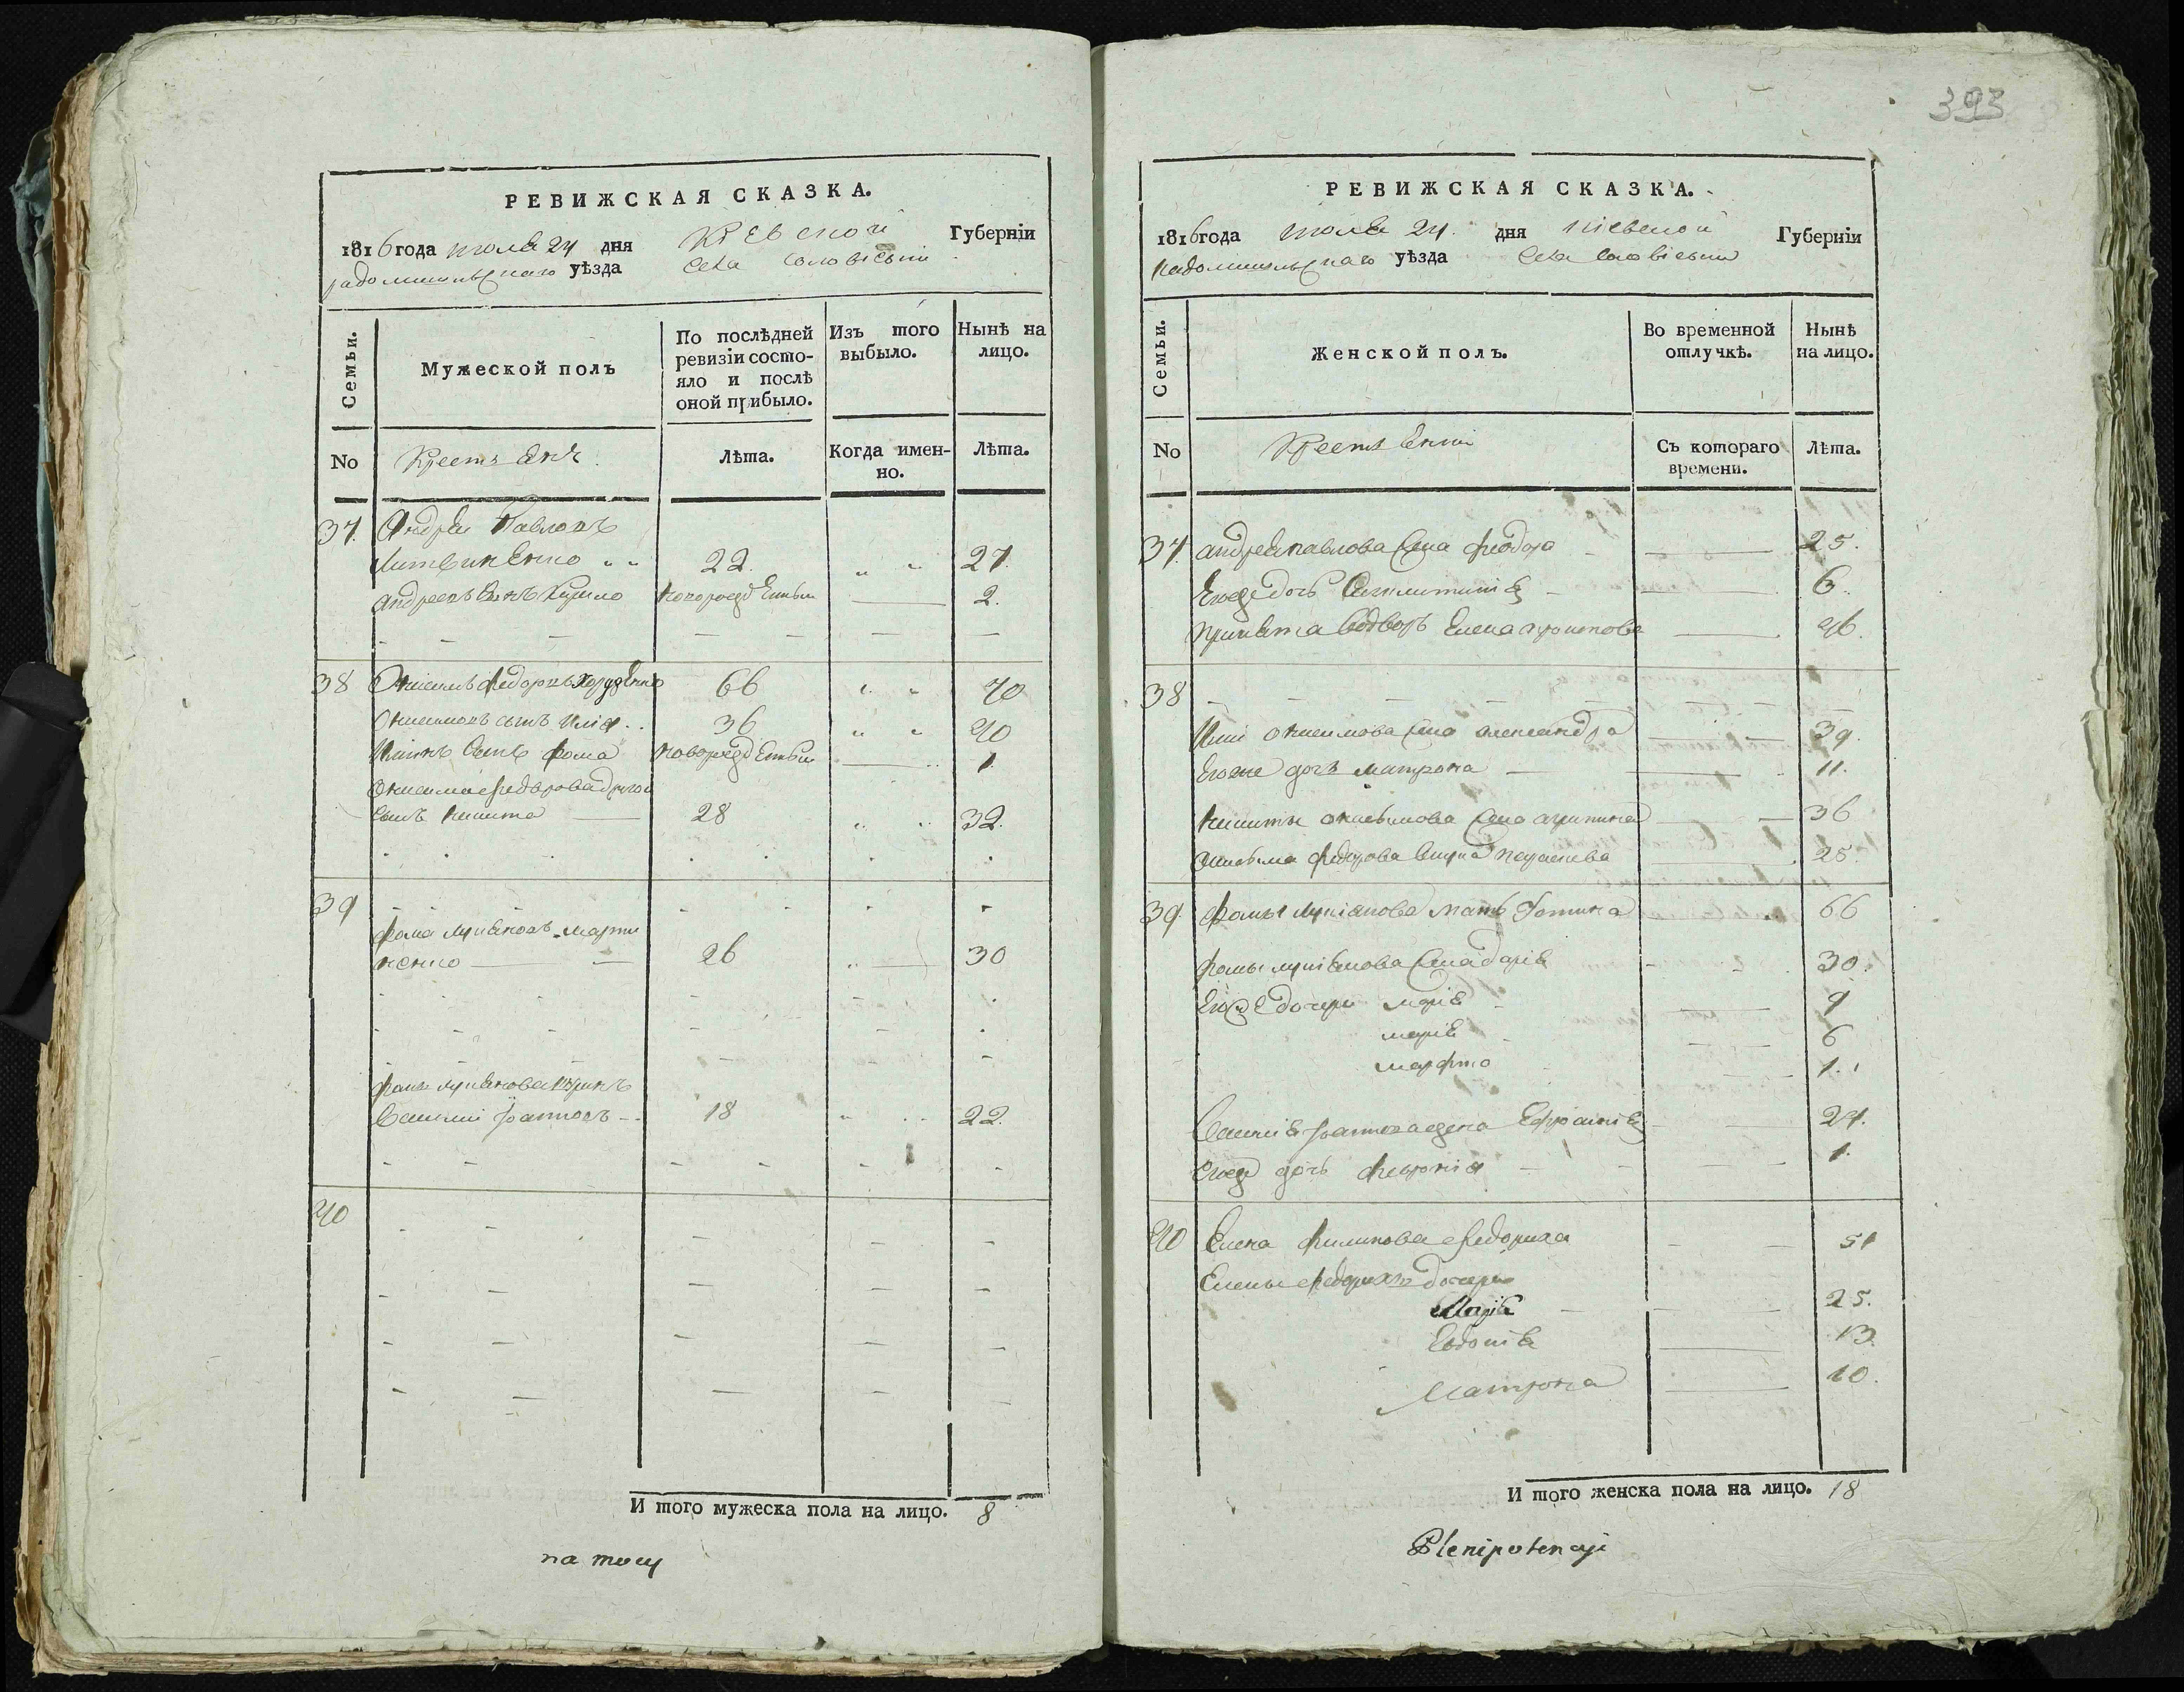 393
РЕВИЖСКАЯ СКАЗКА.
1816 года июля 24 дня Киевской Губерніи
радомишльскаго уѣзда Села Соловіевки
Семьи.
Мужеской полъ
По послѣдней ревизіи состо-
яло и послѣ
оной прибыло.
Изъ того выбыло.
Нынѣ на лицо.
No
Лѣта.
Когда имен-
но.
Лѣта.
37. Андрей Павловъ
Литвиненко „ „ 22. „ „ 27.
Андреевъ сынъ новорождённый 2.
38 Онисимъ Федоровъ 66 „ „ 70
Онисимовъ сынъ Илія 36 „ „ 40
Иліинъ сынъ Фома новорождённый 1.
Онисима Федорова другой
сынъ Никита 28 „ „ 32.
39
Фома Лукіановъ Марти
ненко 26 „ 30
Фомы Лукіанова
18 „ 22.
40
И того мужеска пола на лицо. 8
na mocy
РЕВИЖСКАЯ СКАЗКА.
1816 года июля 24. дня Кіевской Губерніи
Радомишльскаго уѣзда Села Соловіевки
Семьи.
Женской полъ.
Во временной
отлучкѣ.
Нынѣ
на лицо.
No
Съ котораго
времени.
Лѣта.
37. Андрея Павлова жена Феодора 25.
Его же дочь 6.
Елена 46.
38
Иліи Онисимова жена Александра 39.
Его же дочь Матрона 11.
Никиты Онисимова жена Агрипина 36
Онисима Федорова внука 25.
39. Фомы Лукіанова мать 66
Фомы Лукіанова жена Дарія 30.
Его же дочери Марія 9
Марія 6
Марфа 1.
жена Ефросинія 24.
Его же дочь Февронія 1.
40 Елена Филипова Федориха 51
Елены Федорихи дочери
Марія 25.
Евдокія 13
Матрона 10.
И того женска пола на лицо. 18
Plenipotencyi